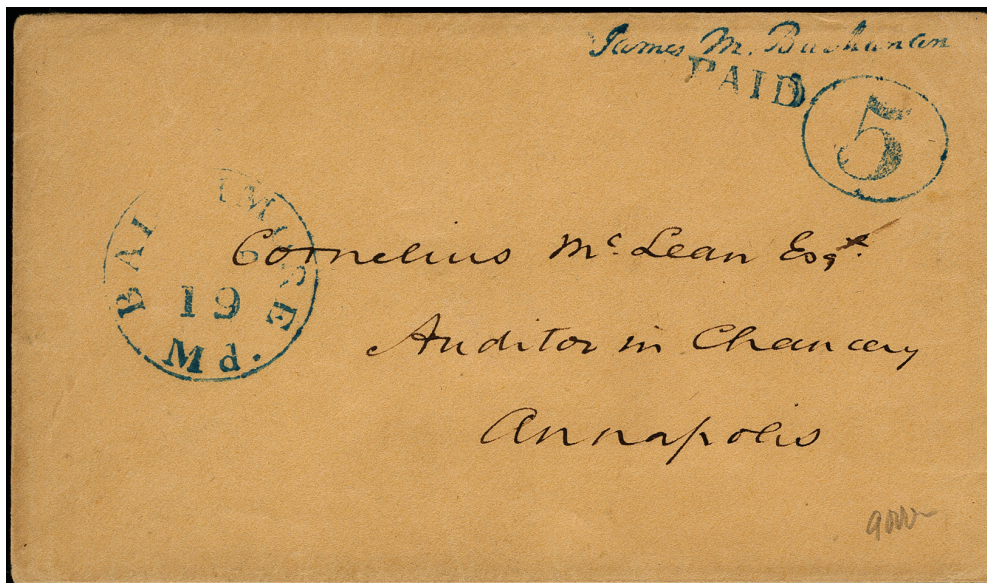 James M. Buchanan
PAID
5
BALTIMORE
19
Md.
Cornelius Mc. Lean Esqr.
Auditor in Chancery
Annapolis